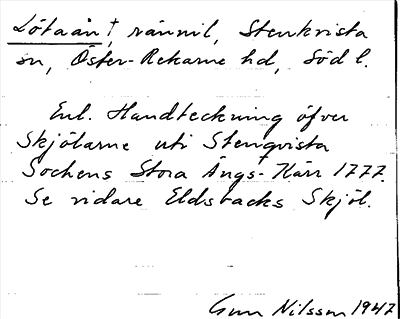 Lötaån †, rännil, Stenkvista
sn, Öster-Rekarne hd, Södl.
Enl. Handteckning öfver
Skjölarne uti Stenqvista
Sochens Stora Ängs-Kärr 1777.
Se vidare Eldsbacks Skjöl.
Gun Nilsson 1947